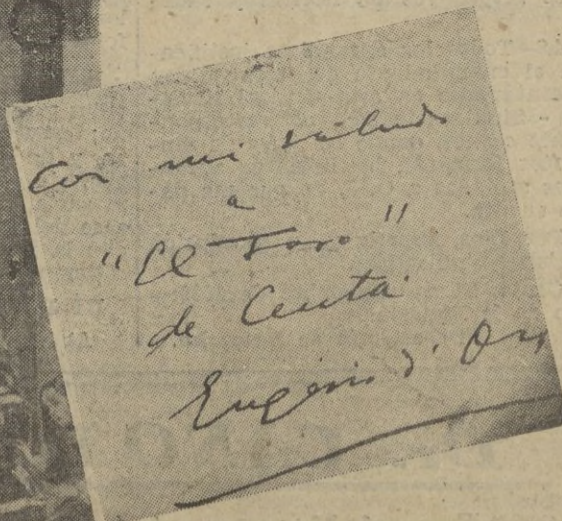 Con mi saludo
a
"El Faro"
de Ceuta
Eugenio d'Ors